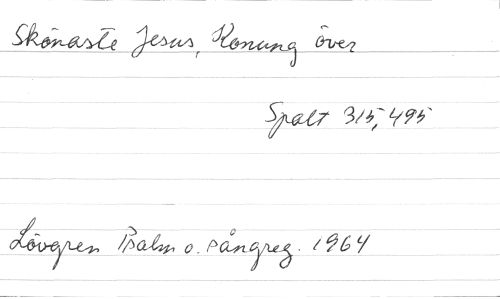 Skönaste Jesus, Konung över
Spalt 315, 495
Lövgren Psalm o. sångreg. 1964